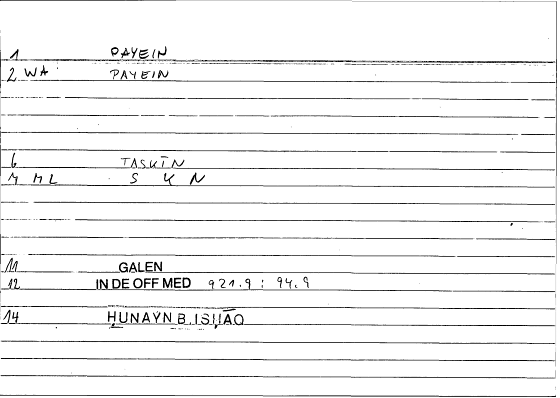 1 PAYEIN
2 WA PAYEIN
6 TASKĪN
7 ML S K N
11 GALEN
12 IN DE OFF MED 921.9 : 94.9
14 ḤUNAYN B. ISḤĀQ